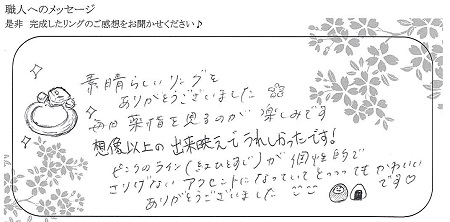 職人へのメッセージ
是非 完成したリングのご感想をお聞かせください♪
素晴らしいリングを
ありがとうございました
毎日 薬指を見るのが 楽しみです
想像以上の 出来映えでうれしかったです!
ピンクのライン(紅ひとすじ)が 個性的で
さりげない アクセントになっていて とっっってもかわいい
です♡
ありがとうございました